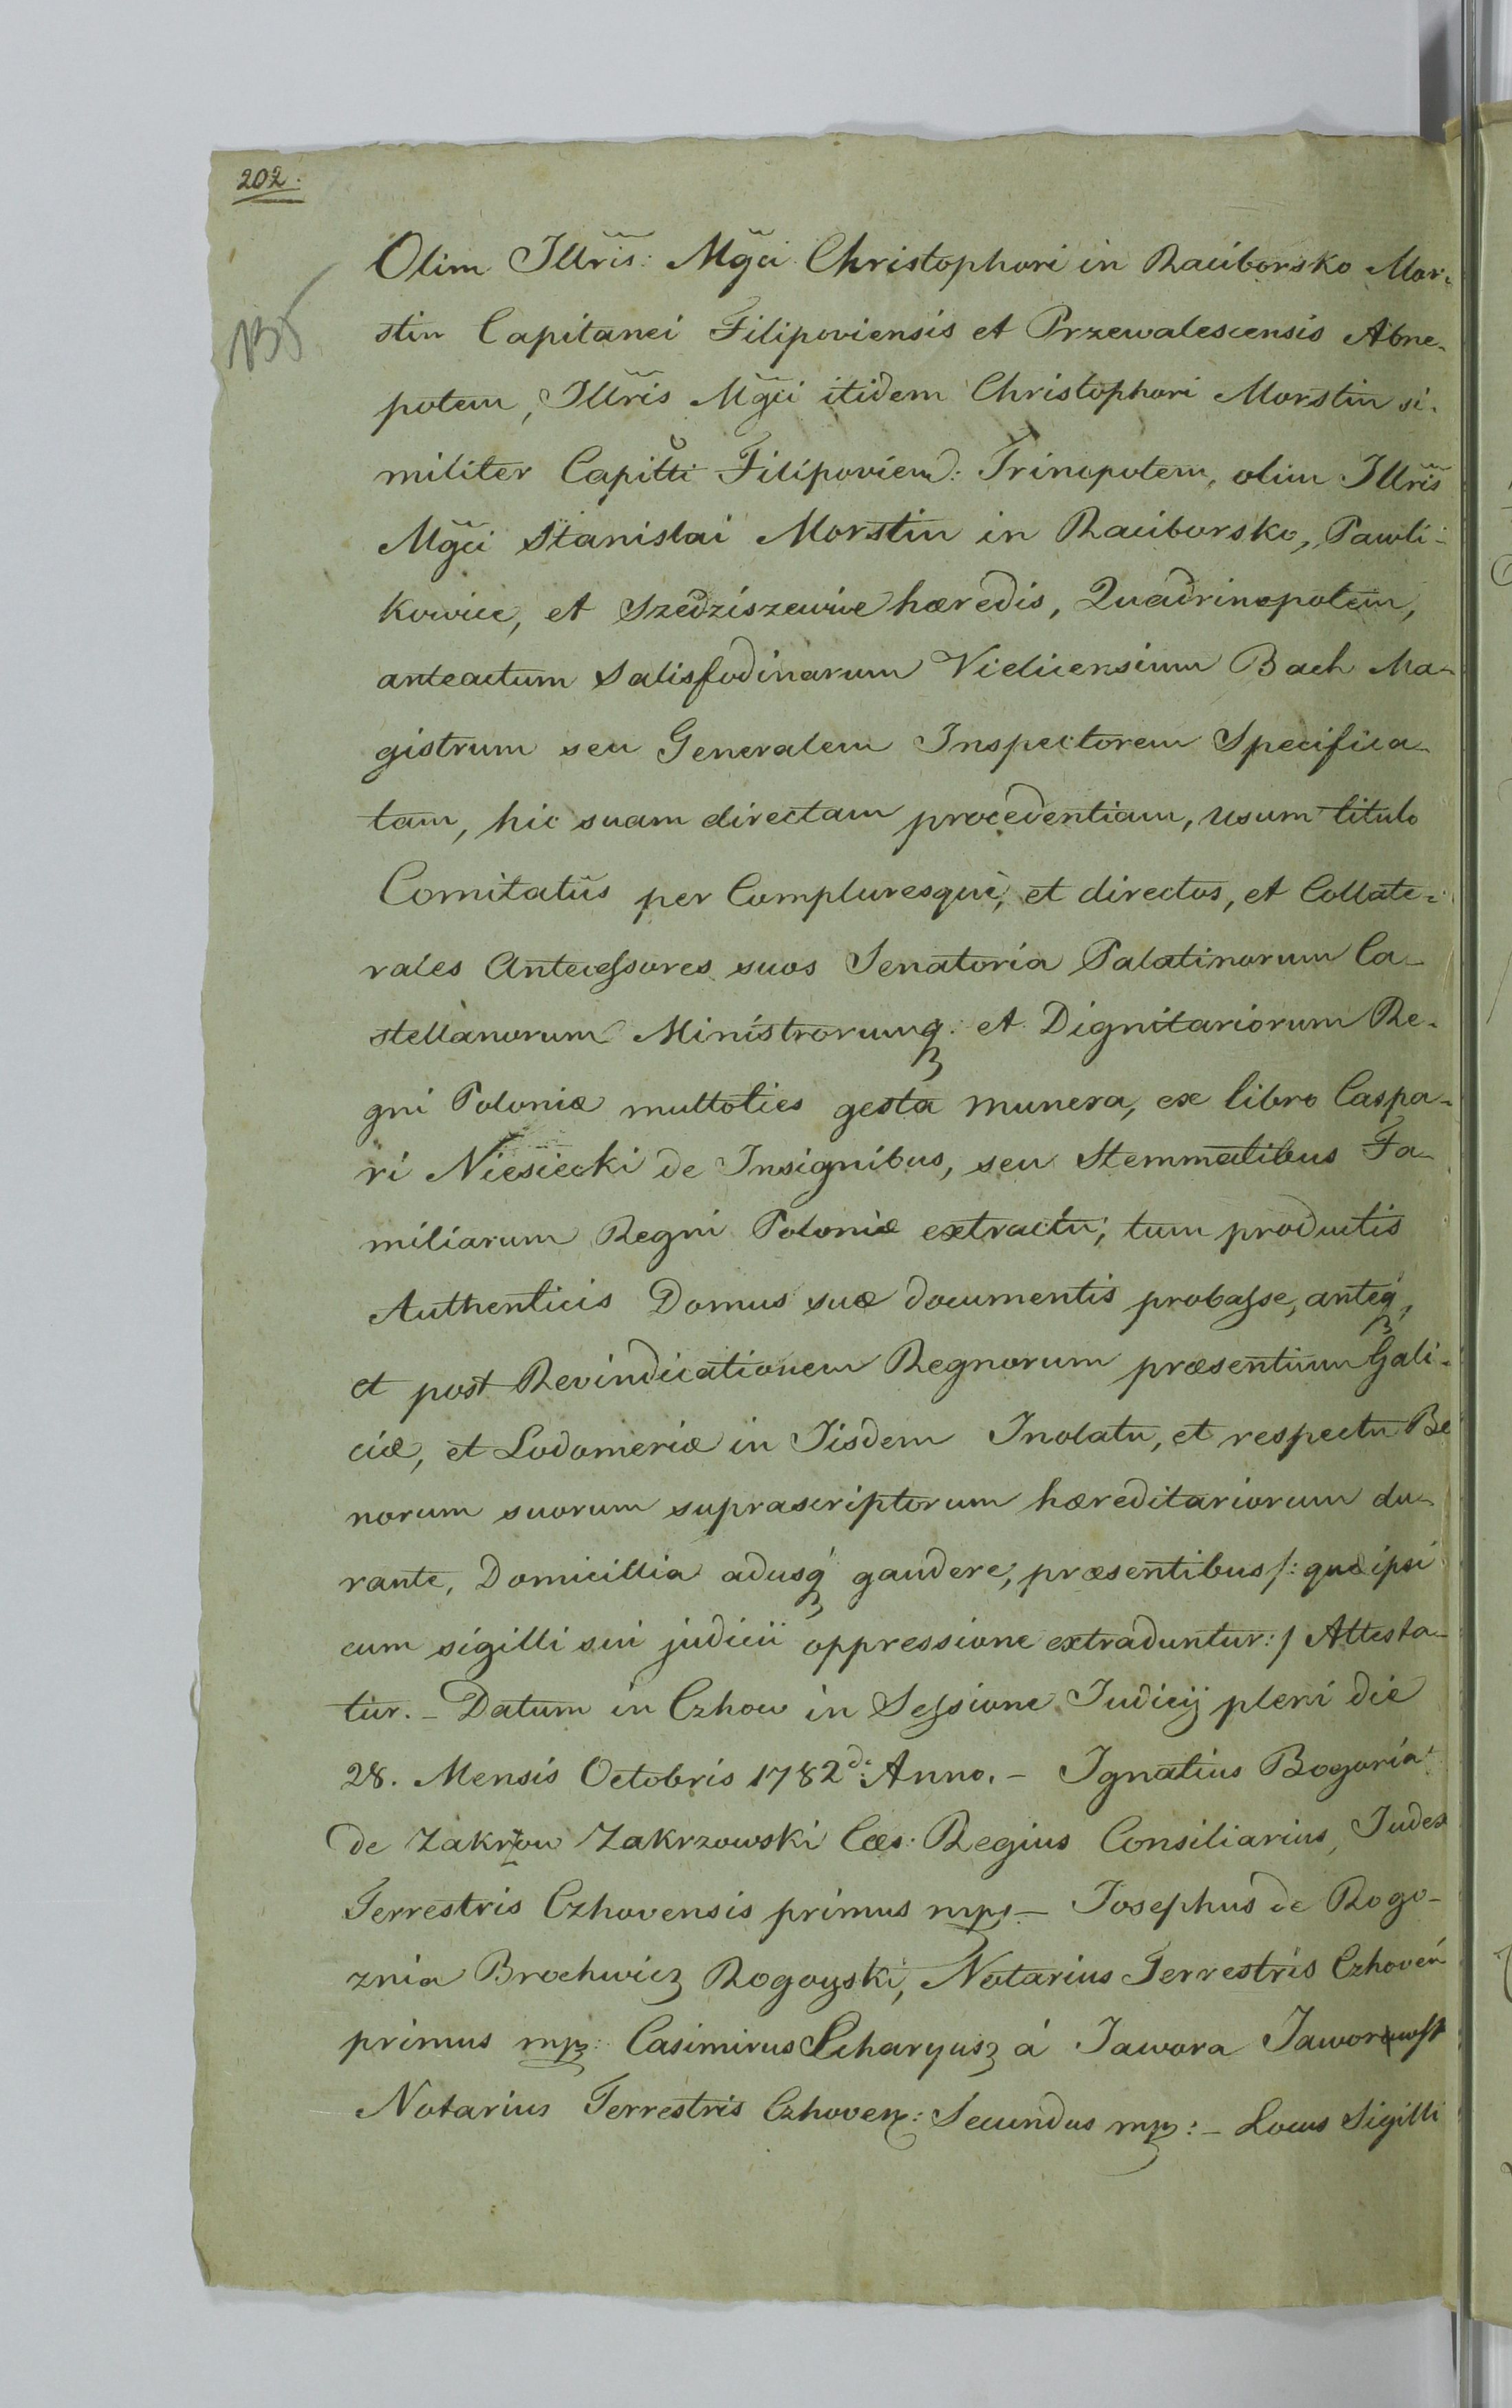 202.
NB
Olim Illris: Mgci Christophori in Raciborsko Mor-
stin Capitanei Filipoviensis et Przewalescensis Abne-
potem, Illris Mgci itidem Christophori Morstin si-
militer Capitti Filipovien: Trinepotem, olim Illris
Mgci Stanislai Morstin in Raciborsko, Pawli-
kowice, et Szedziszewice hæredis, Quadrinepotem,
anteactum Salisfodinarum Vielicensium Bach Ma-
gistrum seu Generalem Inspectorem Specifica-
tam, hic suam directam procedentiam, usum titulo
Comitatus per Compluresque, et directos, et Collate-
rales Antecessores suos Senatoria Palatinorum Ca-
stellanorum Ministrorumq: et Dignitariorum Re-
gni Poloniæ multoties gesta munera, ex libro Caspa-
ri Niesiecki de Insignibus, seu Stemmatibus Fa-
miliarum Regni Poloniæ extractu, tum productis
Authenticis Domus suæ documentis probasse, anteq,
et post Revindicationem Regnorum præsentium Gali-
ciæ, et Lodomeriæ in Iisdem Inolatu, et respectu Bo
norum suorum suprascriptorum hæreditariorum du-
rante, Domicillia adusq gaudere, præsentibus /: quæ ipsi
cum sigilli sui judicii oppressione extraduntur :/ Attesta-
tur. - Datum in Czhow in Sessione Judicij pleni die
28. Mensis Octobris 1782do: Anno. - Ignatius Bogoria
de Zakrzow Zakrzowski Cæs: Regius Consiliarius, Judex
Terrestris Czhovensis primus mp - Josephus de Rogo-
znia Brochwicz Rogoyski, Notarius Terrestris Czhoveń
primus mp: Casimirus Leharyusz á Jawora
Notarius Terrestris Czhoven: Secundus mp: - Locus Sigilli